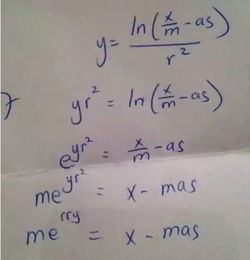 y = ln(x/m - as) / r²
yr² = ln(x/m - as)
e^yr² = x/m - as
me^yr² = x - mas
me^rry = x - mas